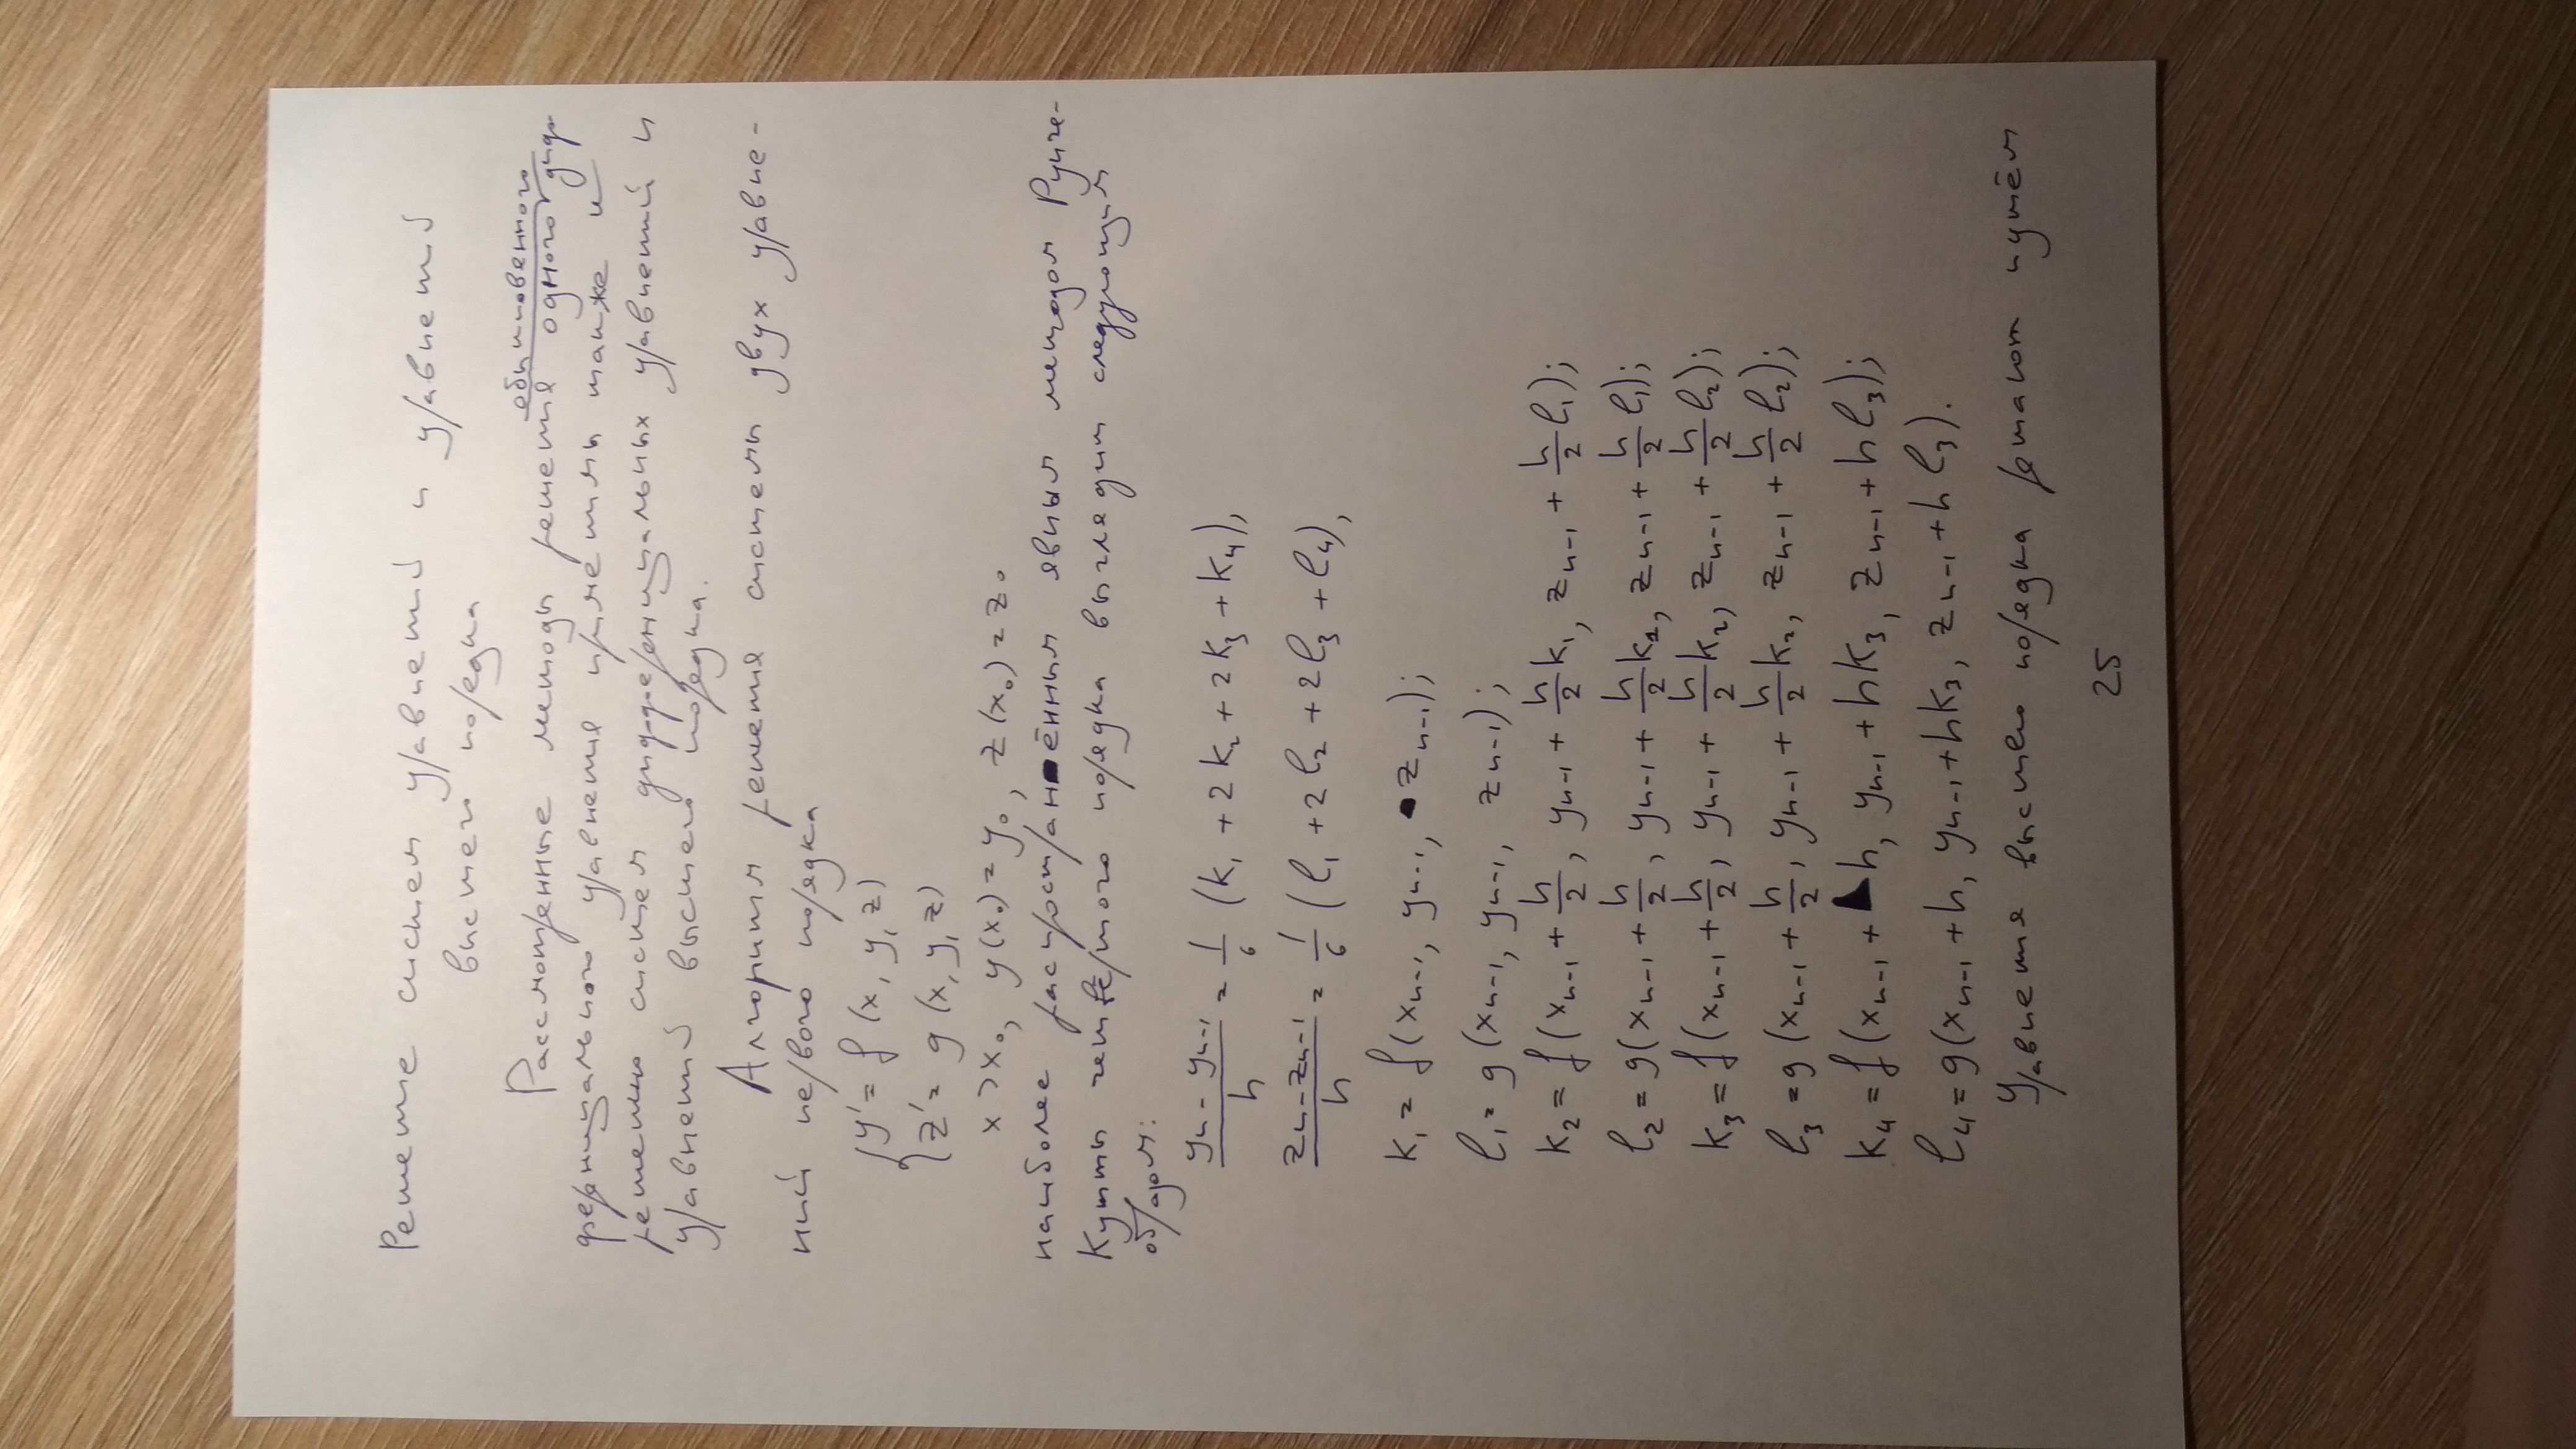 Решение систем уравнений и уравнений
высшего порядка
обыкновенного
Рассмотренные методы решения одного диф-
ференциального уравнения применимы также к
решению систем дифференциальных уравнений и
уравнений высшего порядка.
Алгоритм решения системы двух уравне-
ний первого порядка
{y' = f(x, y, z)
{z' = g(x, y, z)
x > x₀, y(x₀) = y₀, z(x₀) = z₀
наиболее распространённым явным методом Рунге-
Кутты четвёртого порядка выглядит следующим
образом:
(yₙ - yₙ₋₁)/h = 1/6 (k₁ + 2k₂ + 2k₃ + k₄),
(zₙ - zₙ₋₁)/h = 1/6 (l₁ + 2l₂ + 2l₃ + l₄),
k₁ = f(xₙ₋₁, yₙ₋₁, zₙ₋₁);
l₁ = g(xₙ₋₁, yₙ₋₁, zₙ₋₁);
k₂ = f(xₙ₋₁ + h/2, yₙ₋₁ + h/2 k₁, zₙ₋₁ + h/2 l₁);
l₂ = g(xₙ₋₁ + h/2, yₙ₋₁ + h/2 k₁, zₙ₋₁ + h/2 l₁);
k₃ = f(xₙ₋₁ + h/2, yₙ₋₁ + h/2 k₂, zₙ₋₁ + h/2 l₂);
l₃ = g(xₙ₋₁ + h/2, yₙ₋₁ + h/2 k₂, zₙ₋₁ + h/2 l₂);
k₄ = f(xₙ₋₁ + h, yₙ₋₁ + hk₃, zₙ₋₁ + hl₃);
l₄ = g(xₙ₋₁ + h, yₙ₋₁ + hk₃, zₙ₋₁ + hl₃).
Уравнения высшего порядка решают путём
25